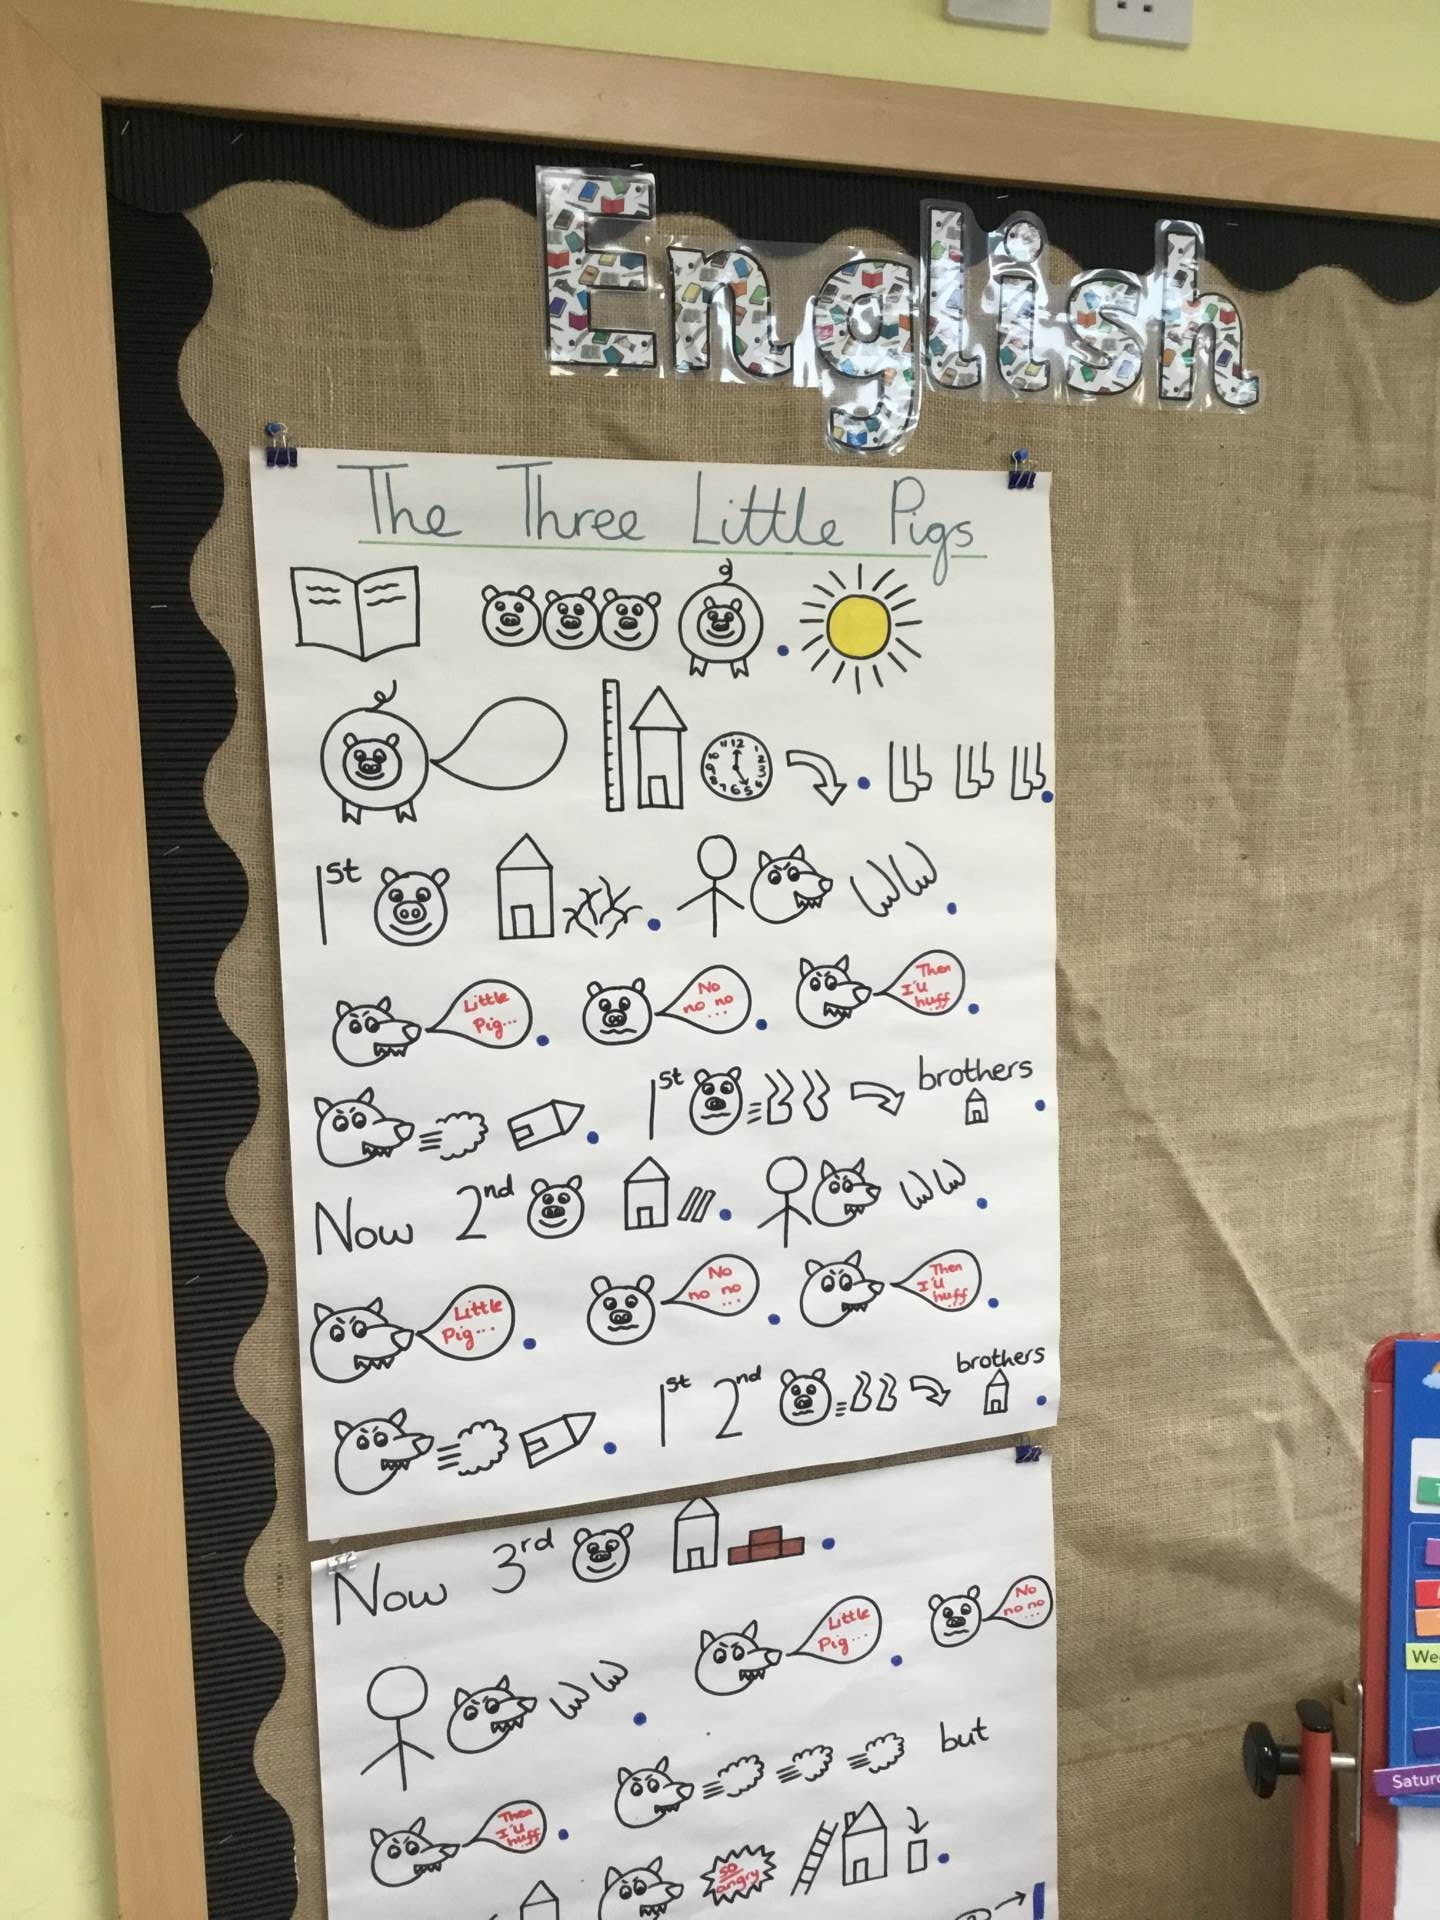 English
The Three Little Pigs
1st
Little Pig...
No no no ...
Then I'll huff ...
1st brothers
Now 2nd
Little Pig...
No no no ...
Then I'll huff ...
1st 2nd brothers
Now 3rd
Little Pig...
No no no ...
but
Then I'll huff ...
so angry
We
Satur